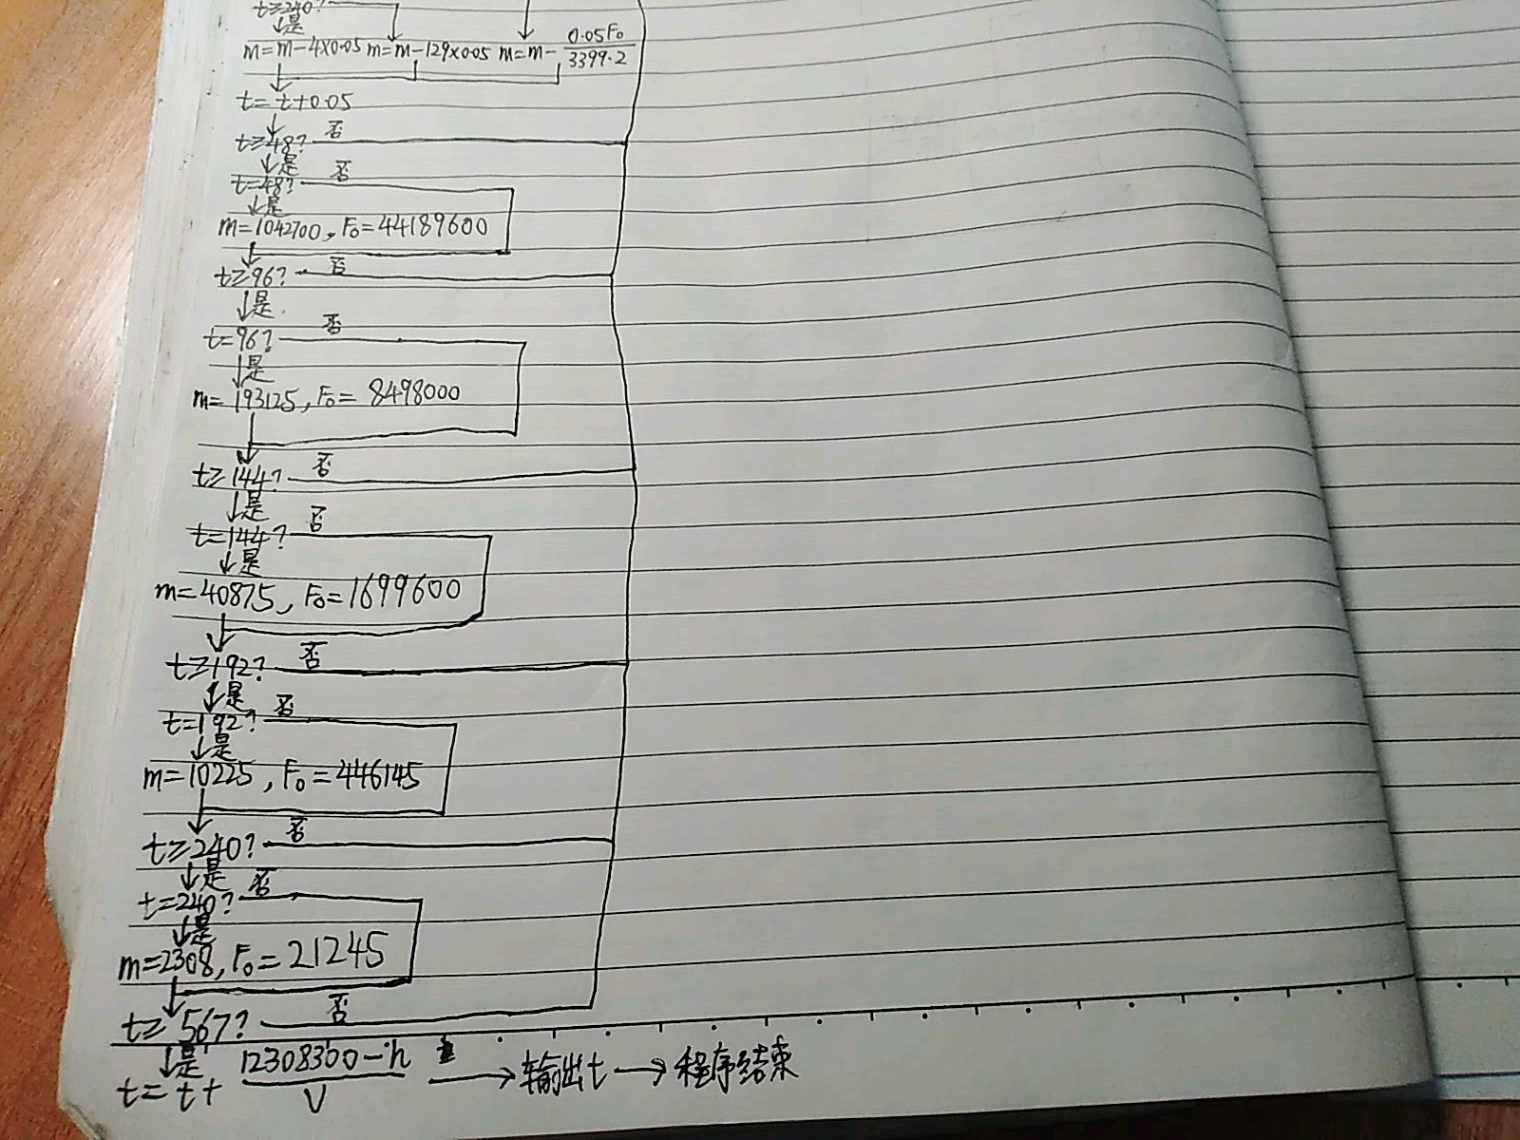 t≥240?
是
m=m-4×0.05 m=m-129×0.05 m=m-0.05F₀/3399.2
t=t+0.05
t≥48? 否
是
t=48? 否
是
m=1042700, F₀=44189600
t≥96? 否
是
t=96? 否
是
m=193125, F₀=8498000
t≥144? 否
是
t=144? 否
是
m=40875, F₀=1699600
t≥192? 否
是
t=192? 否
是
m=10225, F₀=446145
t≥240? 否
是
t=240? 否
是
m=2308, F₀=21245
t≥567? 否
是
t=t+(12308300-h)/v → 输出t → 程序结束